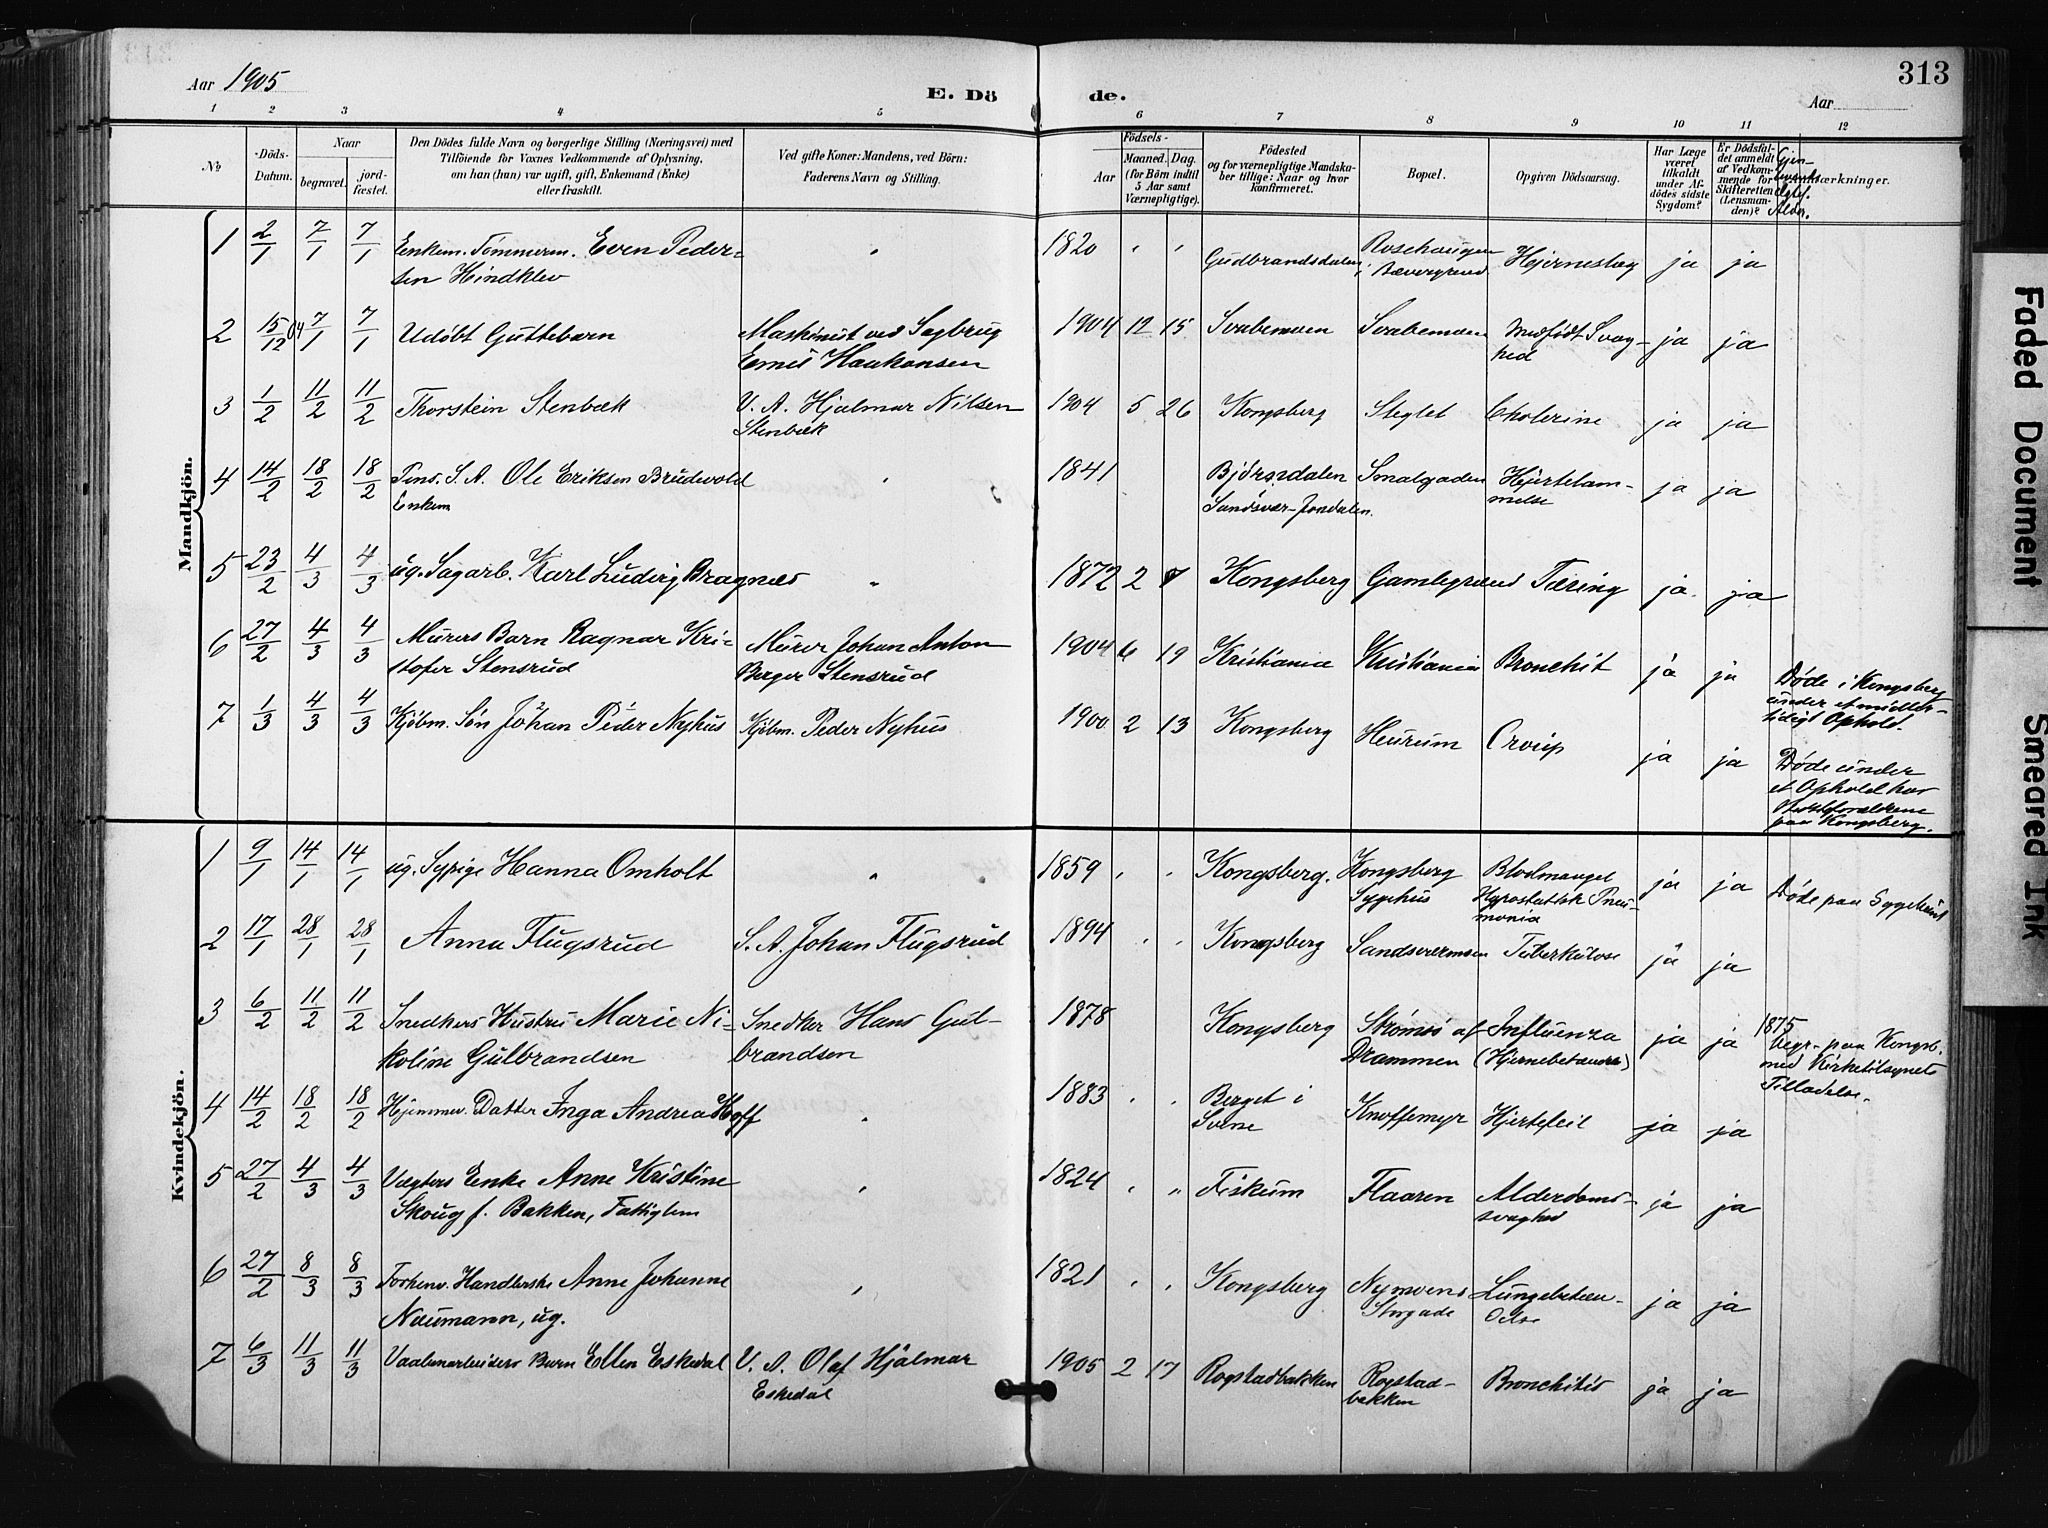 313
Aar 1905
E. Dö de.
Aar
1 2 3 4 5 6 7 8 9 10 11 12
No.
Döds-Datum.
Naar
begravet.
jord-fæstet.
Den Dödes fulde Navn og borgerlige Stilling (Næringsvei) med
Tilföiende for Voxnes Vedkommende af Oplysning,
om han (hun) var ugift, gift, Enkemand (Enke)
eller fraskilt.
Ved gifte Koner: Mandens, ved Börn:
Faderens Navn og Stilling.
Födsels-
Aar
Maaned. Dag.
(for Börn indtil
5 Aar samt
Værnepligtige).
Födested
og for værnepligtige Mandska-
ber tillige: Naar og hvor
konfirmeret.
Bopæl.
Opgiven Dödsaarsag.
Har Læge
været
tilkaldt
under Af-
dödes sidste
Sygdom?
Er Dödsfal-
det anmeldt
af Vedkom-
mende for
Skifteretten
(Lensman-
den)?
Anmærkninger.
Mandkjön.
1 2/1 7/1 7/1 Enkem. Tømmerm. Even Peder- " 1820 " " Gudbrandsdalen Rosehaugen Hjerneslag ja ja
sen Hindklev i Bævergrend
2 15/12 04 7/1 7/1 Udøbt Guttebarn Maskinist ved Sagbrug 1904 12 15 Svabemoen Svabemoen Medfødt Svag- ja ja
Emil Haakonsen hed
3 1/2 11/2 11/2 Thorstein Stenbæk V. A. Hjalmar Nilsen 1904 5 26 Kongsberg Steglet Cholerine ja ja
Stenbæk
4 14/2 18/2 18/2 Pens. S. A. Ole Eriksen Brudevold " 1841 Bjørndalen Smalgaden Hjertelam- ja ja
Enkem Sandsvær-Jondalen. melse
5 23/2 4/3 4/3 ug. Sagarb. Karl Ludvig Bragnæs " 1872 2 7 Kongsberg Gamlegrend Tæring ja. ja
6 27/2 4/3 4/3 Murers Barn Ragnar Kri- Murer Johan Anton 1904 6 19 Kristiania Kristiania Bronchit ja ja Døde i Kongsberg
stofer Stensrud Berger Stensrud under et midler-
tidigt Ophold.
7 1/3 4/3 4/3 Kjøbm. Søn Johan Peder Nyhus Kjøbm. Peder Nyhus 1900 2 13 Kongsberg Heurum Croup ja ja Døde under
et Ophold hos
paa Kongsberg.
Kvindekjön.
1 9/1 14/1 14/1 ug. Sypige Hanna Omholt " 1859 " " Kongsberg. Kongsberg Blodmangel ja ja Døde paa Sygehuset
Sygehus Hypostatisk Pneu-
monia
2 17/1 28/1 28/1 Anna Flugsrud S. A. Johan Flugsrud 1894 " " Kongsberg Sandsværmoen Tuberkulose ja ja
3 6/2 11/2 11/2 Snedkers Hustru Marie Ni- Snedker Hans Gul- 1878 Kongsberg Strømsø af Influenza ja ja 1875
koline Gulbrandsen brandsen Drammen (Hjernebetændelse) begr. paa Kongsb.
med Kirketilsynets
Tilladelse.
4 14/2 18/2 18/2 Hjemmev. Datter Inga Andrea Hoff " 1883 " " Berget i Knoffemyr Hjertefeil ja ja
Svene
5 27/2 4/3 4/3 Vægters Enke Anne Kristine " 1824 " " Fiskum Flaaren Alderdoms- ja ja
Skoug f. Bakken, Fattiglem svaghed
6 27/2 8/3 8/3 Forhenv. Handlerske Anne Johanne " 1821 " " Kongsberg Nymoens Lungebetæn- ja ja
Naumann, ug. Storgade delse
7 6/3 11/3 11/3 Vaabenarbeiders Barn Ellen Eskedal V. A. Olaf Hjalmar 1905 2 17 Rogstadbakken Rogstad- Bronchitis ja ja
Eskedal bakken
Faded Document
Smeared Ink